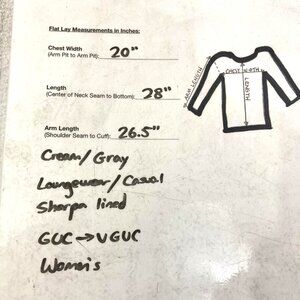 Flat Lay Measurements in Inches:
Chest Width
(Arm Pit to Arm Pit): 20"
Length
(Center of Neck Seam to Bottom): 28"
Arm Length
(Shoulder Seam to Cuff): 26.5"
Cream/Gray
Loungewear/Casual
Sherpa lined
GUC → VGUC
Women's
ARM LENGTH
CHEST WIDTH
LENGTH